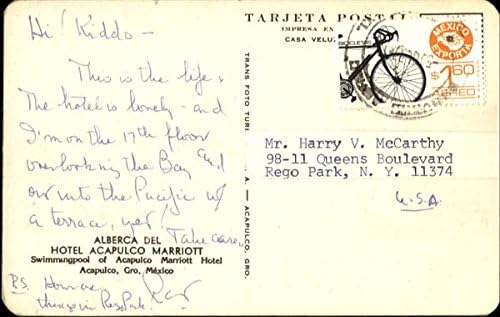 Hi! Kiddo -
This is the life.
The hotel is lovely - and
I'm on the 17th floor
overlooking the Bay and
out into the Pacific w/
a terrace, yet!
Take care,
Ray
P.S. How are
things in Rego Park.
ALBERCA DEL
HOTEL ACAPULCO MARRIOTT
Swimmungpool of Acapulco Marriott Hotel
Acapulco, Gro. México
TRANS FOTO TURI
A. — ACAPULCO, GRO.
TARJETA POSTAL
IMPRESA EN
CASA VELU
MEXICO
EXPORTA
$1.60
AEREO
Mr. Harry V. McCarthy
98-11 Queens Boulevard
Rego Park, N. Y. 11374
U.S.A.